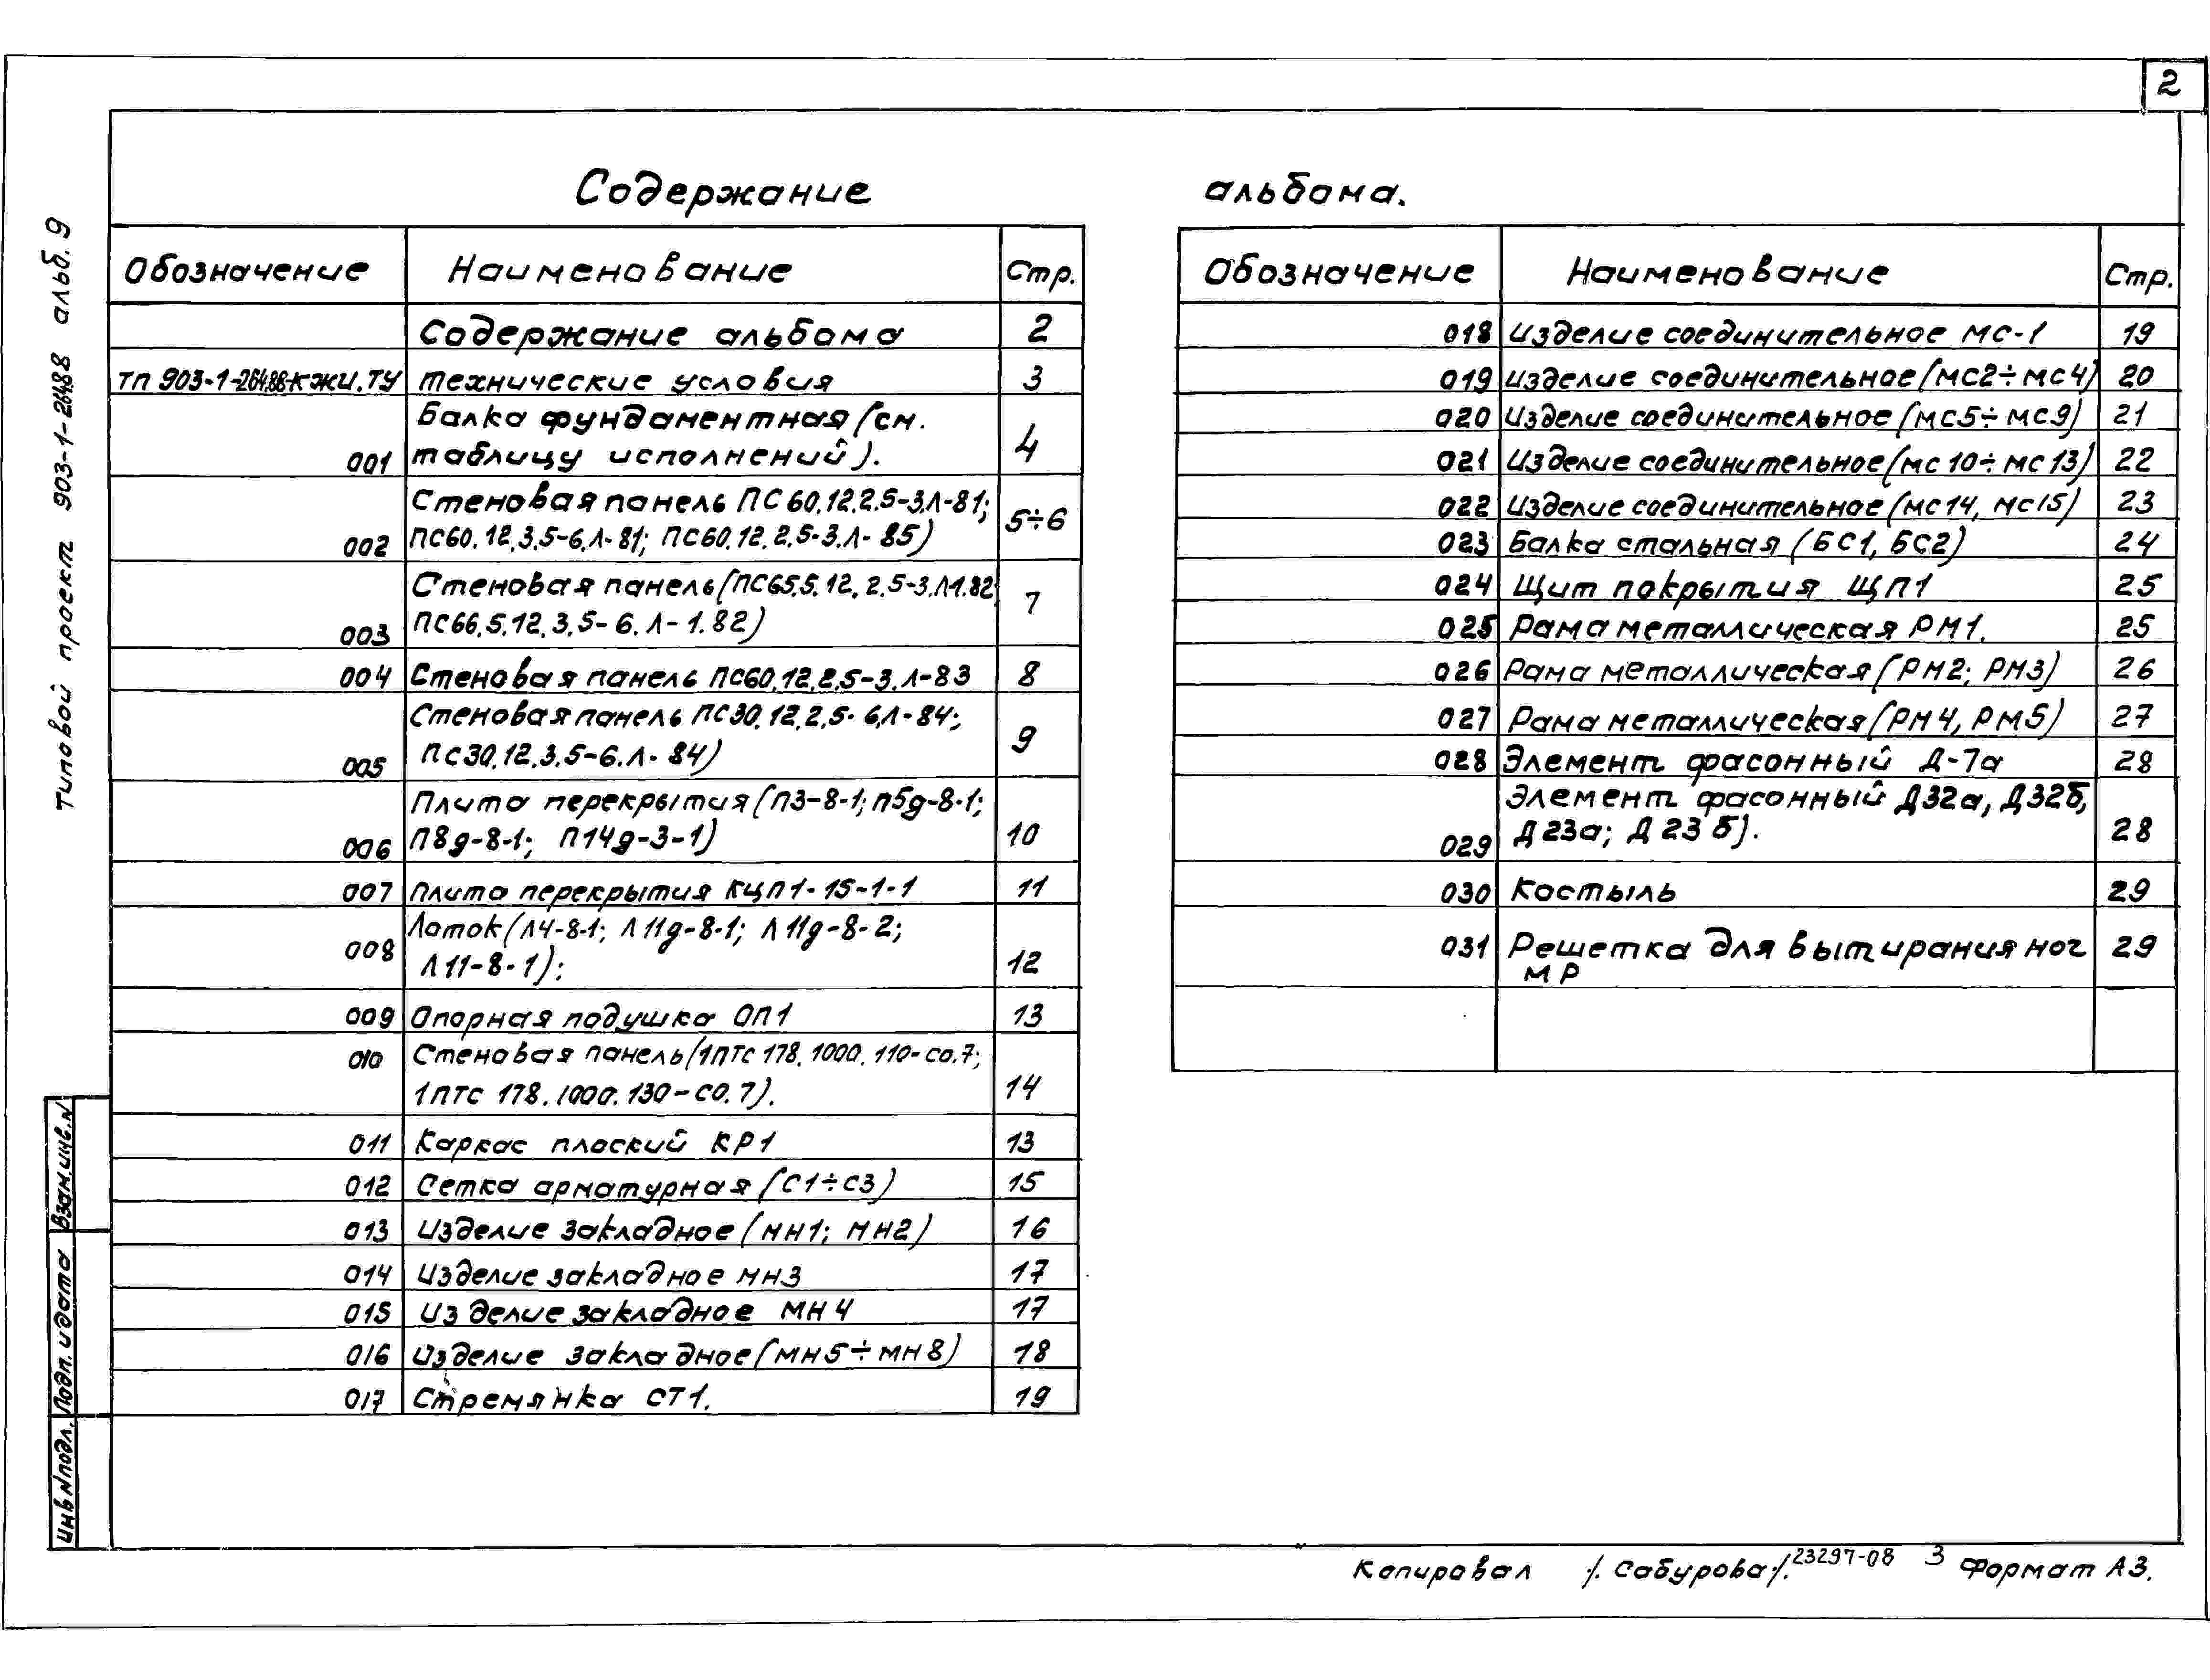 2
Содержание альбома.
Типовой проект 903-1-264.88 альб. 9
Обозначение Наименование Стр.
Содержание альбома 2
ТП 903-1-264.88-КЖИ.ТУ Технические условия 3
Балка фундаментная (см.
001 таблицу исполнений). 4
Стеновая панель ПС 60.12.2.5-3.Л-81;
002 ПС60.12.3.5-6.Л-81; ПС60.12.2.5-3.Л-85) 5÷6
Стеновая панель (ПС65.5.12.2.5-3.Л-1.82
003 ПС66.5.12.3.5-6.Л-1.82) 7
004 Стеновая панель ПС60.12.2.5-3.Л-83 8
Стеновая панель ПС30.12.2.5-6.Л-84;
005 ПС30.12.3.5-6.Л-84) 9
Плита перекрытия (П3-8-1; П5д-8-1;
006 П8д-8-1; П14д-3-1) 10
007 Плита перекрытия КЦП1-15-1-1 11
Лоток (Л4-8-1; Л11д-8-1; Л11д-8-2;
008 Л11-8-1); 12
009 Опорная подушка ОП1 13
010 Стеновая панель (1ПТС 178.1000.110-СО.7;
1ПТС 178.1000.130-СО.7). 14
011 Каркас плоский КР1 13
012 Сетка арматурная (С1÷С3) 15
013 Изделие закладное (МН1; МН2) 16
014 Изделие закладное МН3 17
015 Изделие закладное МН4 17
016 Изделие закладное (МН5÷МН8) 18
017 Стремянка СТ1. 19
Обозначение Наименование Стр.
018 Изделие соединительное МС-1 19
019 Изделие соединительное (МС2÷МС4) 20
020 Изделие соединительное (МС5÷МС9) 21
021 Изделие соединительное (МС10÷МС13) 22
022 Изделие соединительное (МС14, МС15) 23
023 Балка стальная (БС1, БС2) 24
024 Щит покрытия ЩП1 25
025 Рама металлическая РМ1. 25
026 Рама металлическая (РМ2; РМ3) 26
027 Рама металлическая (РМ4, РМ5) 27
028 Элемент фасонный Д-7а 28
Элемент фасонный Д32а, Д32б,
029 Д23а; Д23б). 28
030 Костыль 29
031 Решетка для вытирания ног 29
МР
Взам.инв.N
Подп. и дата
Инв N подл.
Копировал /. Сабурова /. 23297-08 3 Формат А3.